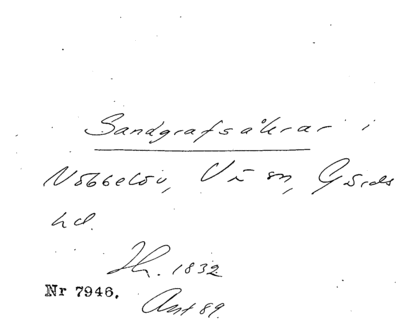 Sandgrafsåkrar i
Nöbbelöv, V sn, Gärds
hd.
Jh. 1832
Nr 7946.
Ant 89.